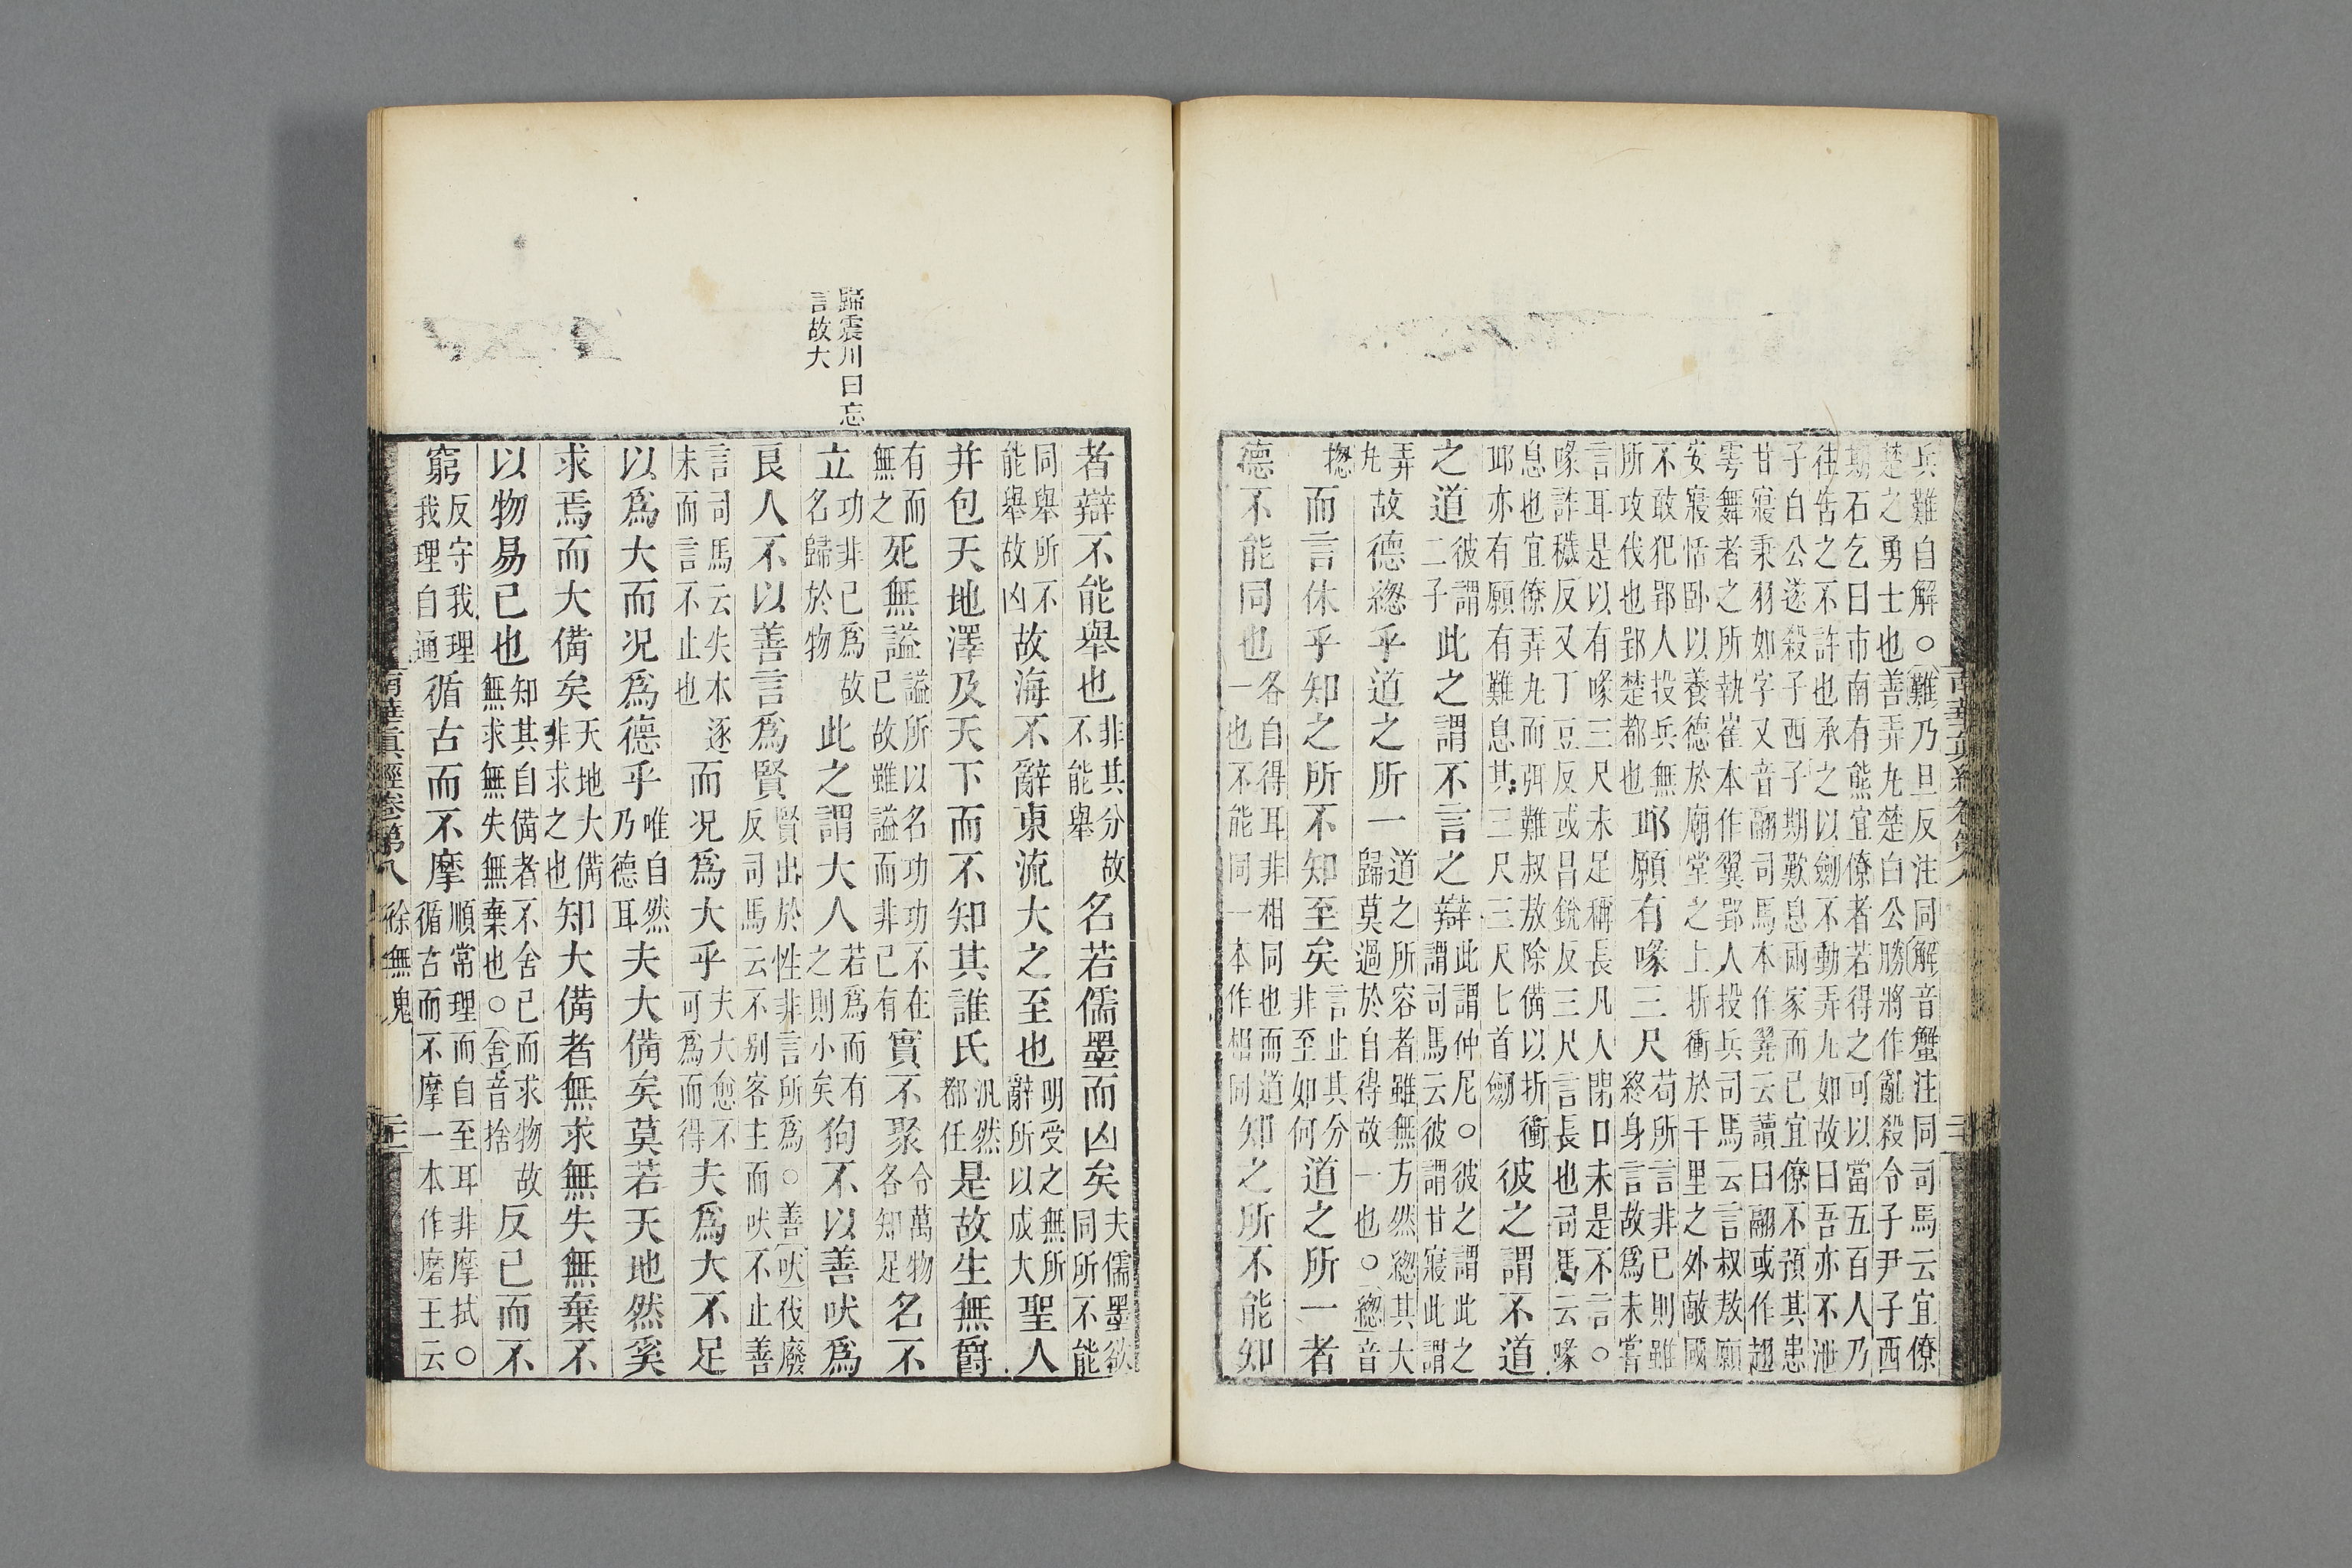 兵難自解○難乃旦反注同解音蟹注同司馬云宜僚
楚之勇士也善弄九楚白公勝將作亂殺令子尹子西
期石乞曰市南有熊宜僚者若得之可以當五百人乃
往告之不許也承之以劔不動弄九如故曰吾亦不泄
子白公遂殺子西子期歎息兩家而已宜僚不預其患
甘寢秉羽如字又音翿司馬本作翣云讀曰翿或作翅
雩舞者之所執崔本作翼郢人投兵司馬云言叔敖願
安寢恬卧以養德於廟堂之上折衝於千里之外敵國
不敢犯郢人投兵無所攻伐也郢楚都也邱願有喙三尺苟所言非已則雖終身言故爲未嘗
言耳是以有喙三尺未足稱長凡人閉口未是不言○
喙許穢反又丁豆反或昌銳反三尺言長也司馬云喙
息也宜僚弄九而弭難叔敖除備以折衝邱亦有願有難息其三尺三尺七首劔彼之謂不道
之道彼謂二子此之謂不言之辯此謂仲尼○彼之謂此之謂司馬云彼謂甘寢此謂
弄九故德緫乎道之所一道之所容者雖無方然緫其大歸莫過於自得故一也○緫音
揔而言休乎知之所不知至矣言止其分非至如何道之所一者
德不能同也各自得耳非相同也而道一也不能同一本作相同知之所不能知
南華真經卷第八 二十二
者辯不能舉也非其分故不能舉名若儒墨而凶矣夫儒墨欲同所不能
同舉所不能舉故凶故海不辭東流大之至也明受之無所辭所以成大聖人
并包天地澤及天下而不知其誰氏汎然都任是故生無爵
有而無之死無謚謚所以名功功不在已故雖謚而非已有實不聚令萬物各知足名不
立功非已爲故名歸於物此之謂大人若爲而有之則小矣狗不以善吠爲
良人不以善言爲賢賢出於性非言所爲○善吠伐廢反司馬云不别客主而吠不止善
言司馬云失本逐末而言不止也而况爲大乎夫大愈不可爲而得夫爲大不足
以爲大而况爲德乎唯自然乃德耳夫大備矣莫若天地然奚
求焉而大備矣天地大備非求之也知大備者無求無失無棄不
以物易已也知其自備者不舍已而求物故無求無失無棄也○舍音捨反已而不
窮反守我理我理自通循古而不摩順常理而自至耳非摩拭○循古而不摩一本作磨王云
南華真經卷第八 徐無鬼 二十三
歸震川曰忘
言故大